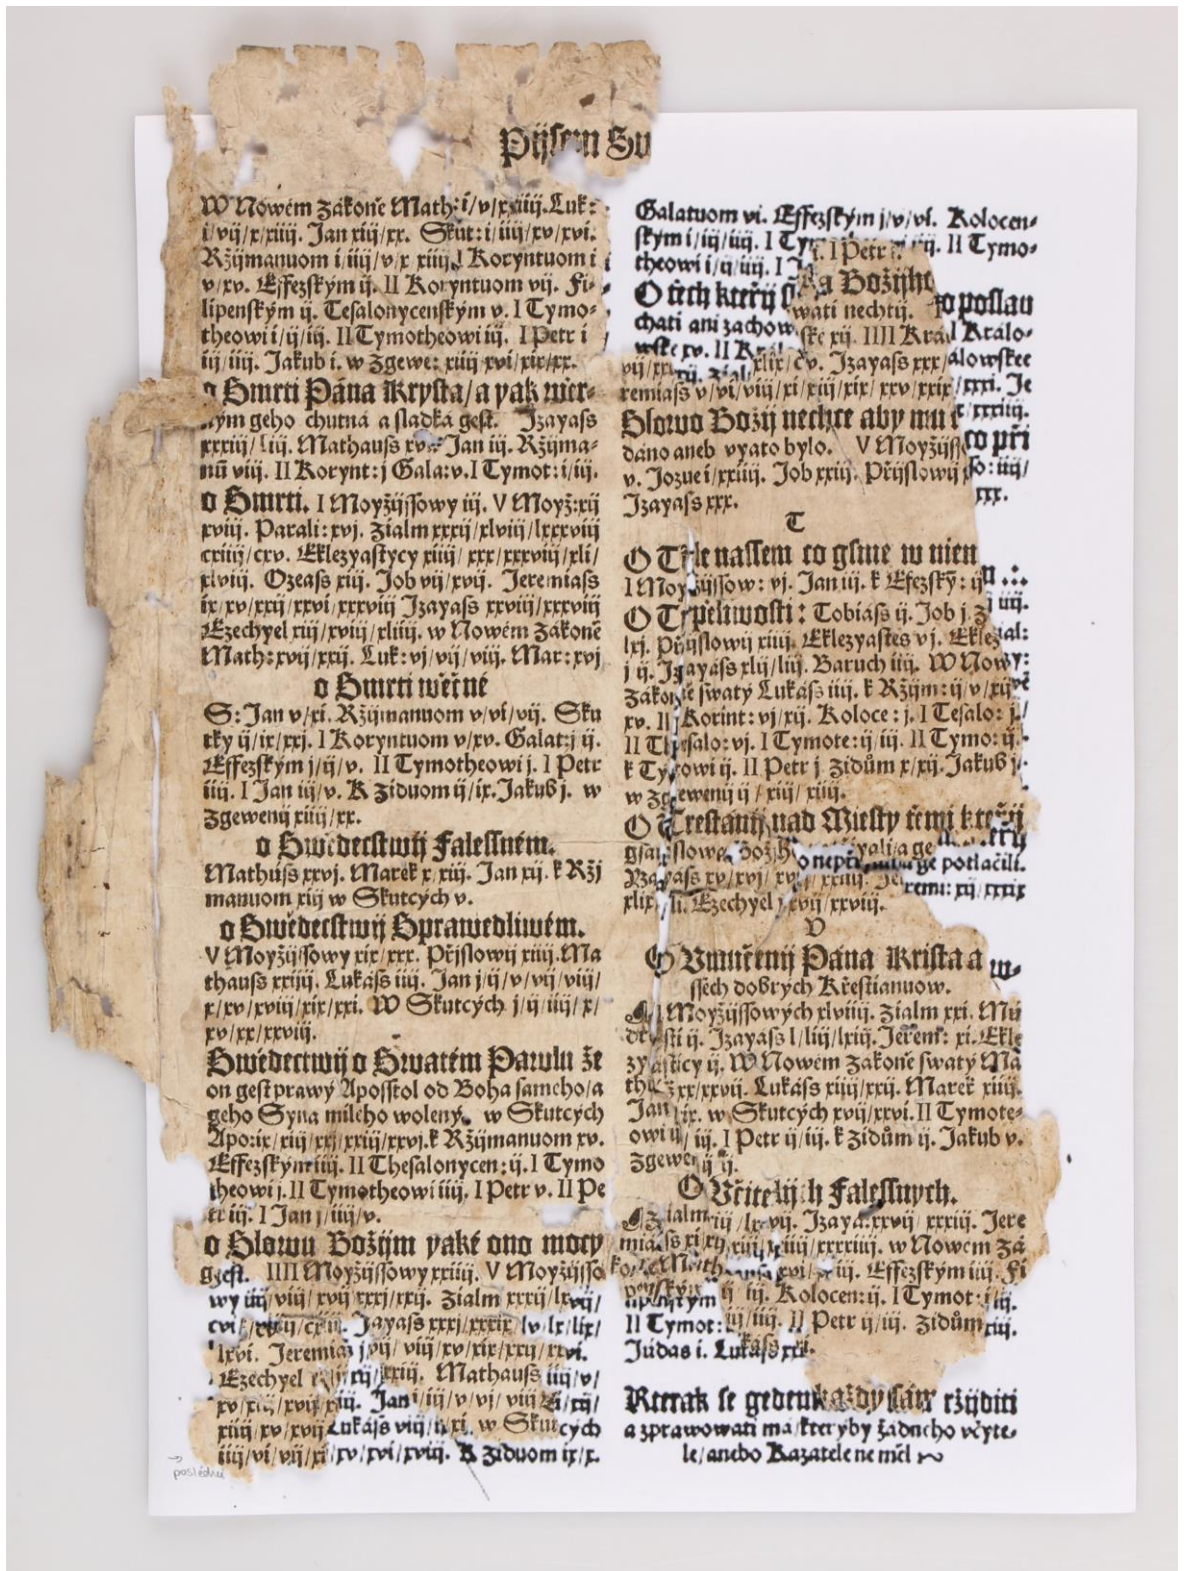 Pijsem Sv
W Nowém zákoně Math: i/v/xxiiij. Luk:
i/vij/x/xiiij. Jan xiij/xx. Skut: i/iiij/xv/xvi.
Ržijmanuom i/iiij/v/x xiiij. I Koryntuom i
v/xv. Effezským ij. II Koryntuom vij. Fi-
lipenským ij. Tesalonycenským v. I Tymo-
theowi i/ij/iij. II Tymotheowi iij. I Petr i
iij/iiij. Jakub i. w Zgewe: xiiij xvi/xix/xx.
o Smrti Pána Krysta/a yak wěr-
ným geho chutná a sladká gest. Izayass
xxxiij/liij. Mathauss xv. Jan iij. Ržijma-
nuͦ viij. II Korynt: j Gala: v. I Tymot: i/iij.
o Smrti. I Moyžijssowy iij. V Moyž: xij
xviij. Parali: xvj. Zialm xxxij/xlviij/lxxxviij
cxiiij/cxv. Eklezyastycy xiiij/xxx/xxxviij/xli/
xlviij. Ozeass xiij. Job vij/xvij. Jeremiass
ix/xv/xxij/xxvi/xxxviij Izayass xxviij/xxxviij
Ezechyel xiij/xviij/xliiij. w Nowém zákoně
Math: xvij/xxij. Luk: vj/vij/viij. Mar: xvj
o Smrti wěčné
S: Jan v/xi. Ržijmanuom v/vi/vij. Sku
tky ij/ix/xxj. I Koryntuom v/xv. Galat: j ij.
Effezským j/ij/v. II Tymotheowi j. I Petr
iiij. I Jan iij/v. K Ziduom ij/ix. Jakub j. w
Zgewenij xiiij/xx.
o Swědectwij Falessném.
Mathúss xxvj. Marek x/xiij. Jan xij. k Ržj
manuom xiij w Skutcých v.
o Swědectwij Sprawedliwém.
V Moyžijssowy xix/xxx. Přijslowij xiiij. Ma
thauss xxiiij. Lukáss iiij. Jan j/ij/v/vij/viij/
x/xv/xviij/xix/xxi. W Skutcých j/ij/iiij/x/
xv/xx/xxviij.
Swědectwij o Swatém Pawlu že
on gest prawý Aposstol od Boha samého/a
geho Syna milého wolený. w Skutcých
Apo: ix/xiij/xxj/xxiij/xxvj. k Ržijmanuom xv.
Effezským iiij. II Thesalonycen: ij. I Tymo
theowi j. II Tymotheowi iiij. I Petr v. II Pe
tr iij. I Jan j/iiij/v.
o Slowu Božijm yaké ono mocy
gest. IIII Moyžijssowy xxiiij. V Moyžijsso
wy iiij/viij/xvij xxxj/xxij. Zialm xxxij/lxvij/
cvi/ Jayass xxxj/xxxix/lv/lx/lix/
lxvi. Jeremiáš j vij/viij/xv/xix/xxij/xxvi.
Ezechyel xij/xxiij. Mathauss iiij/v/
xv/xix/xvij/xiij. Jan iij/v/vj/viij xij/
xiiij xv/xvij Lukáss viij/ij/xi. w Skutcých
iiij/vi/vij/xi xv/xvi/xviij. K Ziduom ix/x.
Galatuom vi. Effezským j/v/vi. Kolocen-
ským i/iij/iiij. I Ty iij. II Tymo-
theowi i/ij/iiij. I i. I Petr
O těch kteřij Božijho poslau
chati ani zachow wati nechtij. I Králo-
wské xv. II Krá ské xij. IIII Kra alowskee
vij/xxi xlix/cv. Izayass xxx xxxi. Je
remiass v/vi/viij/xi/xiij/xix/xxv/xxix/ xxxiij.
Slowo Božij nechce aby mu co při
dáno aneb vyato bylo. V Moyžijsso: iiij/
v. Jozue i/xxiij. Job xxiij. Přijslowij xxx.
Izayass xxx.
T
O Těle nassem co gsme w nien
I Moyžijssow: vj. Jan iij. k Efezský: ij iiij.
O Trpěliwosti: Tobiáss ij. Job j. Zial:
lxj. Přijslowij xiiij. Eklezyastes vj. Ekle
j ij. Izayass xlij/liij. Baruch iiij. W Nowé
zákoně swatý Lukáss iiij. k Ržijm: ij/v/xij
xv. II Korint: vj/xij. Koloce: j. I Tesalo: j/
II Thesalo: vj. I Tymote: ij/iij. II Tymo: ij.
k Ty owi ij. II Petr j Zidům x/xij. Jakub j.
w Zgewenij ij/xiij/xiiij.
O Trestanij nad Miesty těmi kteřij
gsau slowo Božijh o nepř yali/a ge potlačili.
Izayass xv/xvj/xvij/xxiiij. Jeremi: xij/xxix
xlix/li. Ezechyel xvij/xxviij.
V
O Vmučenij Pána Krista a w-
ssech dobrých Křestianuow.
I Moyžijssowých xlviij. Zialm xxi. Mú
drosti ij. Izayass l/liij/lxiij. Jerem: xi. Ekle
zyasticy ij. W Nowém zákoně swatý Ma
thu: xx/xxvij. Lukáss xiij/xxij. Marek xiiij.
Jan ix. w Skutcých xvij/xxvi. II Tymote-
owi ij/iij. I Petr ij/iij. k Zidům ij. Jakub v.
Zgewe ij ij.
O Včitelijch Falessných.
Zialm iij/lxvij. Izaya: xxvij/xxxiij. Jere
miáss xi/xij xxiij/xiiij/xxxxiiij. w Nowem Zá
koně Math xvi/ iij. Effezským iiij. Fi
penským ij iij. Kolocen: ij. I Tymot: i/iij.
II Tymot: iij/iiij. II Petr ij/iij. Zidům xiij.
Júdas i. Lukáss xxi.
Kterak se geden každy sám ržijditi
a zprawowati má/kteryby žádného včyte-
le/anebo Kazatele ne měl
poslední